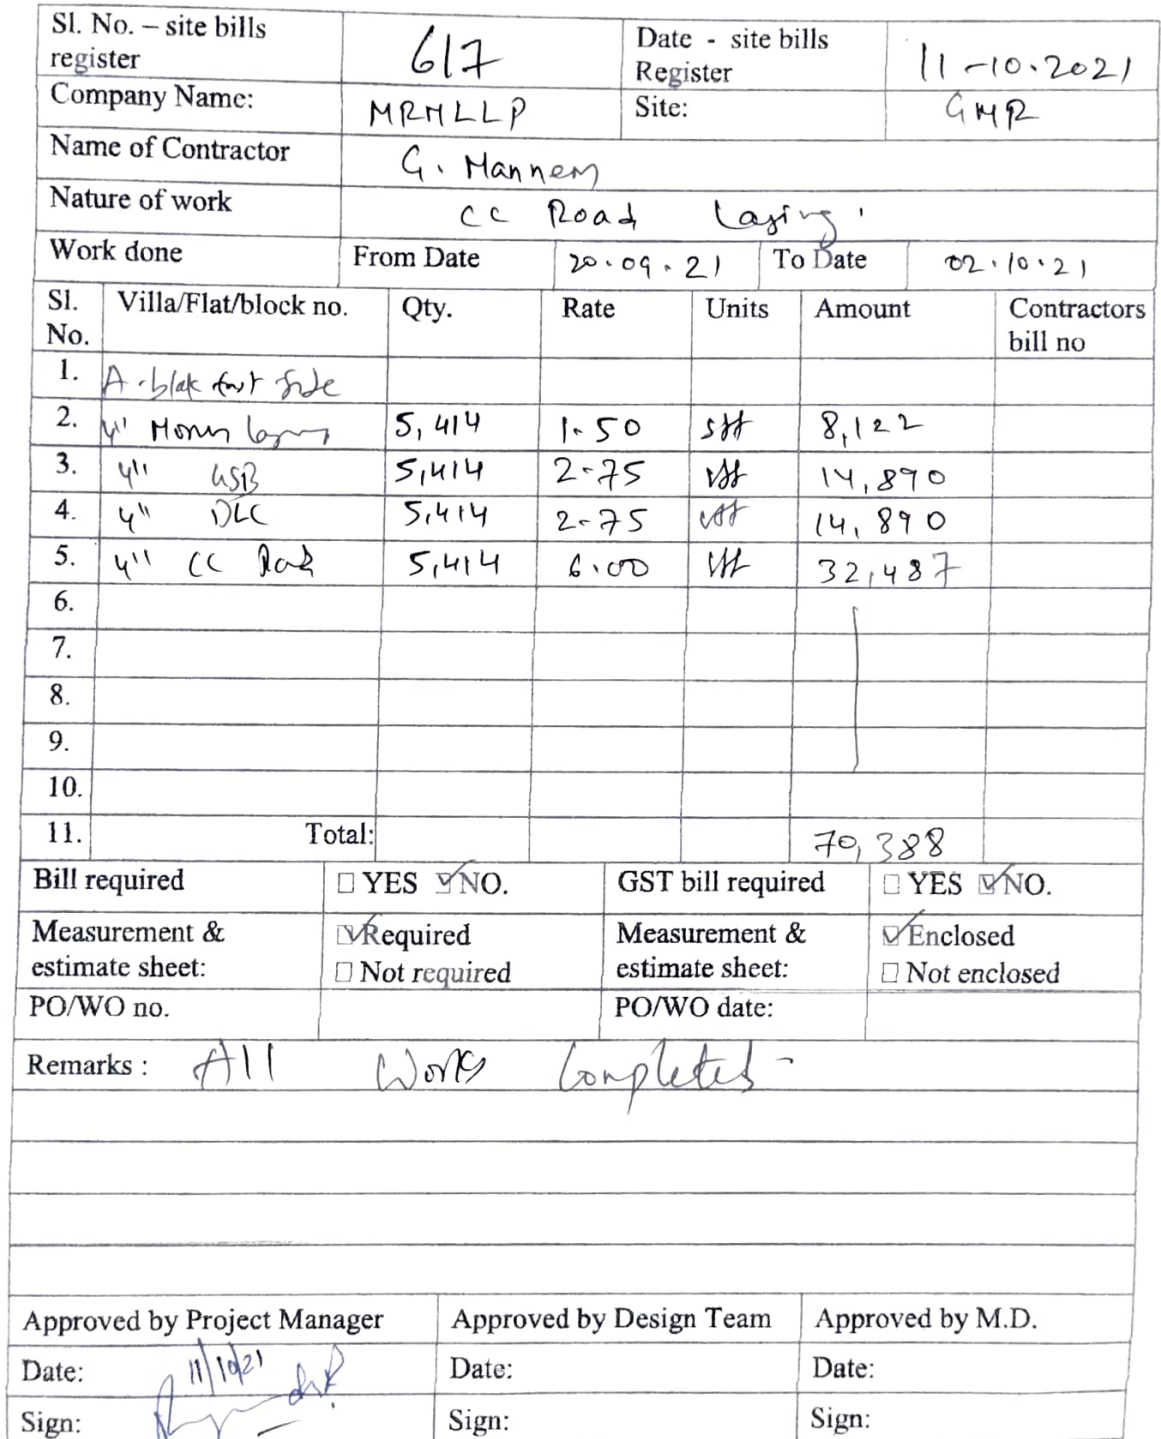 Sl. No. – site bills register 617 Date - site bills Register 11-10.2021
Company Name: MRMLLP Site: GMR
Name of Contractor G. Mannem
Nature of work CC Road Laying
Work done From Date 20.09.21 To Date 02.10.21
Sl. No. Villa/Flat/block no. Qty. Rate Units Amount Contractors bill no
1. A-block side
2. 4" 5,414 1.50 sft 8,122
3. 4" GSB 5,414 2-75 sft 14,890
4. 4" DLC 5,414 2-75 sft 14,890
5. 4" CC Road 5,414 6.00 sft 32,487
6.
7.
8.
9.
10.
11. Total: 70,388
Bill required ☐ YES ☑ NO. GST bill required ☐ YES ☑ NO.
Measurement & estimate sheet: ☑ Required Measurement & estimate sheet: ☑ Enclosed
☐ Not required ☐ Not enclosed
PO/WO no. PO/WO date:
Remarks : All Works Completed -
Approved by Project Manager Approved by Design Team Approved by M.D.
Date: 11/10/21 Date: Date:
Sign: Sign: Sign: